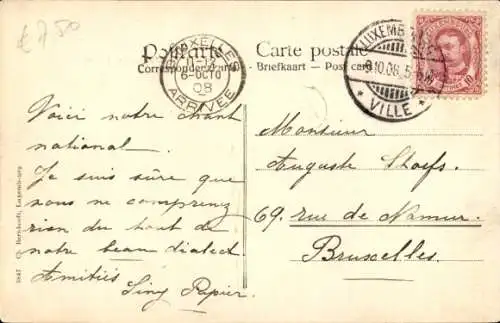 £ 750
Postkarte Carte postale
Correspondenzkarte - Briefkaart — Post card
BRUXELLES
11-12
6-OCTO
08
ARRIVEE
LUXEMB
VILLE
10
Voici notre chant
national.
Je suis sûre que
vous ne comprenez
rien du tout de
notre beau dialect
Amitiés
Siny Papier.
Monsieur
Auguste
69. rue de Namur.
Bruxelles.
Bernhoeft, Luxemburg